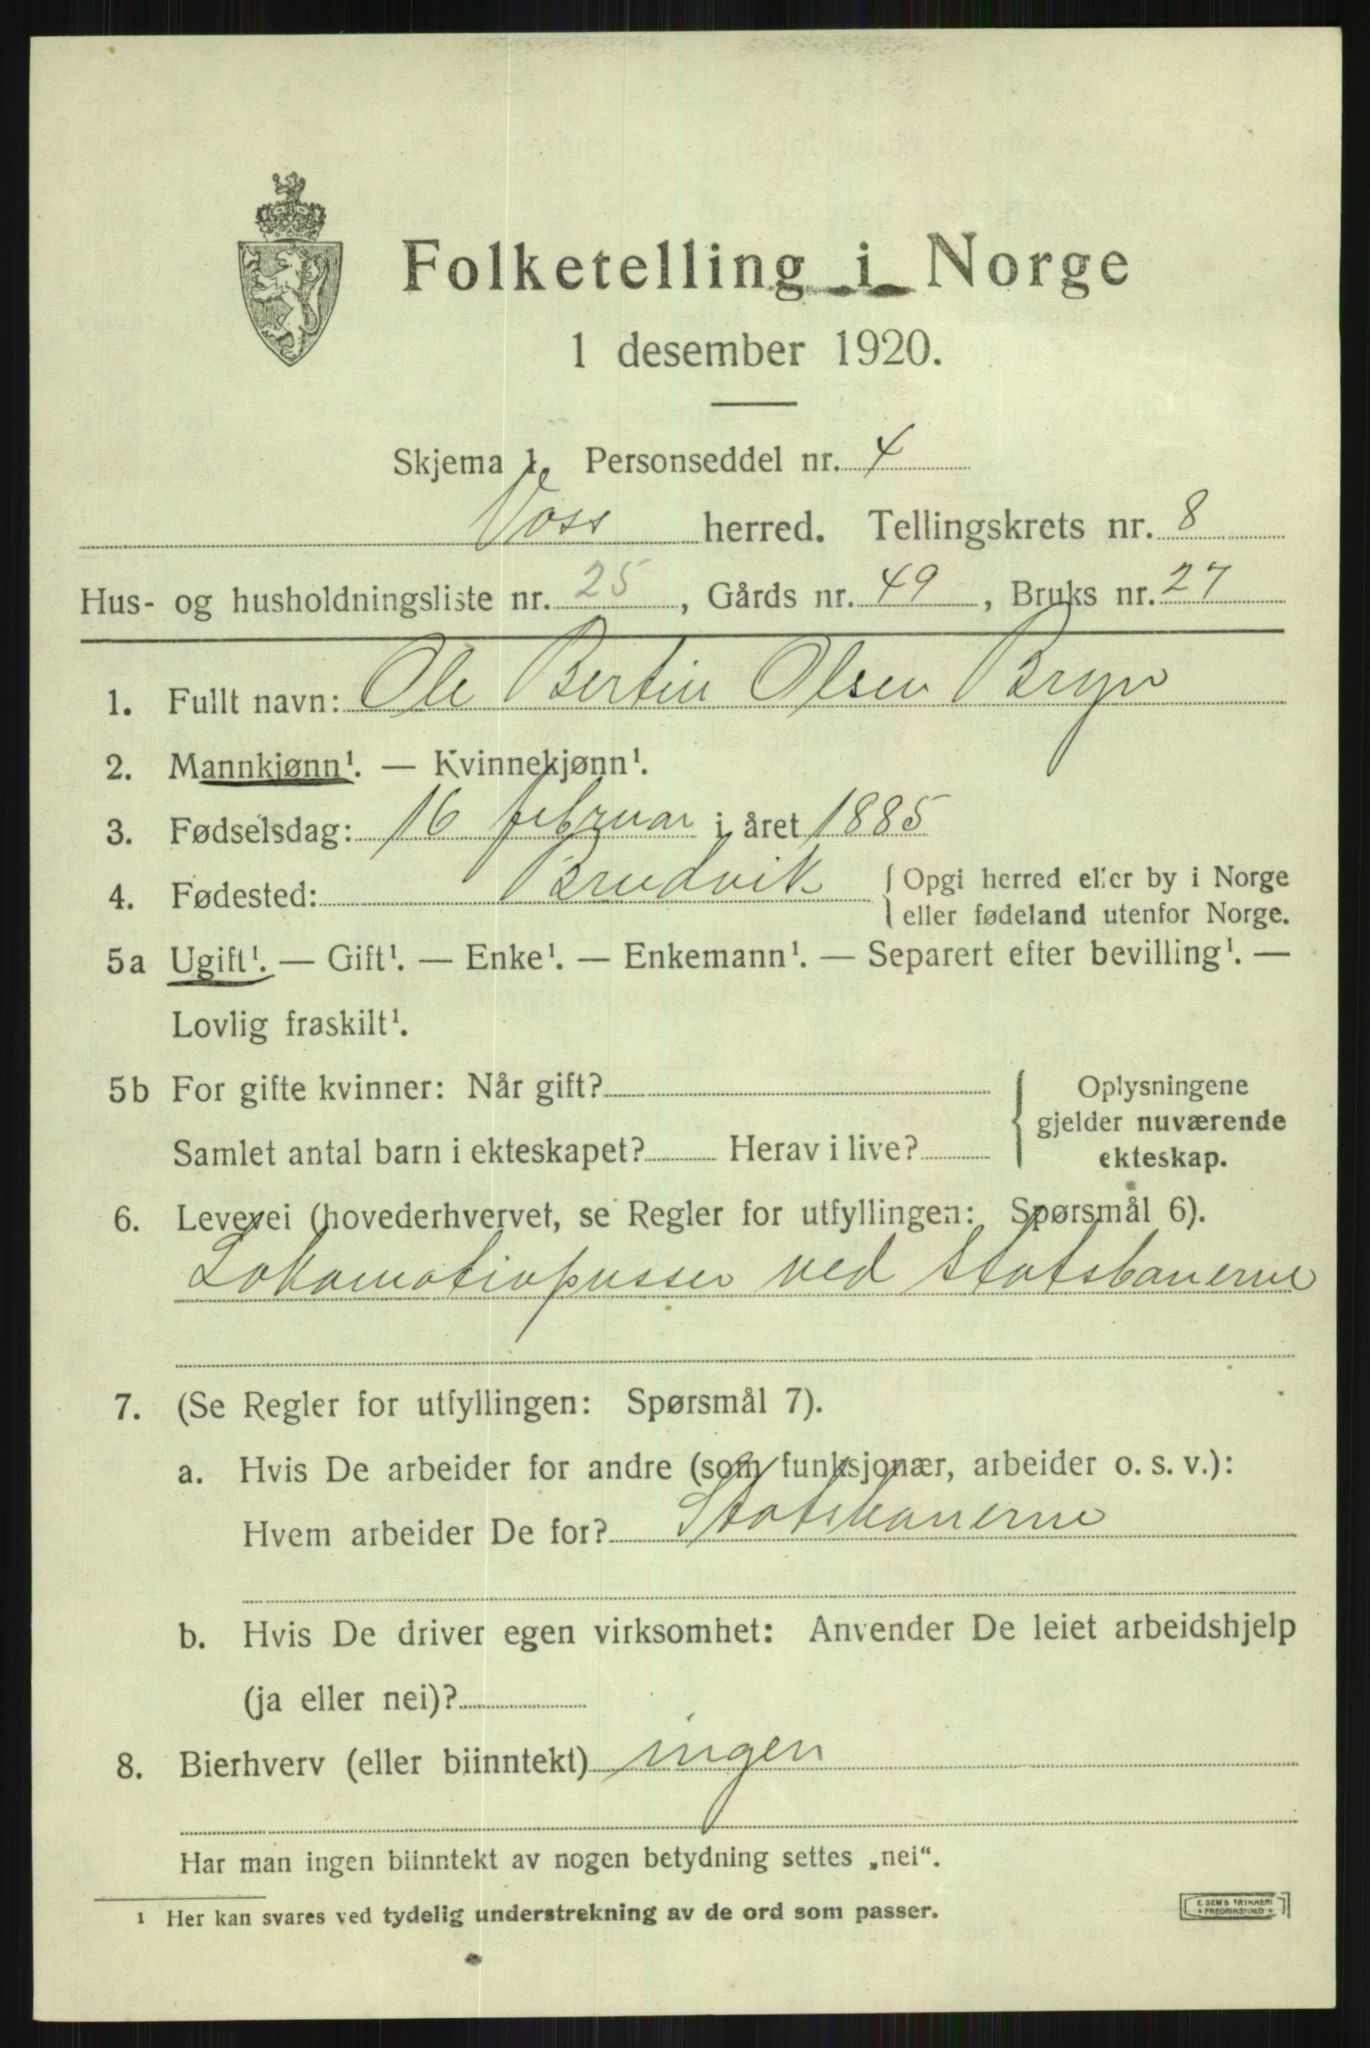 Folketelling i Norge
1 desember 1920.
Skjema 1. Personseddel nr. 4
Voss herred. Tellingskrets nr. 8
Hus- og husholdningsliste nr. 25, Gårds nr. 49, Bruks nr. 27
1. Fullt navn: Ole Bertin Olsen Bryn
2. Mannkjønn¹. — Kvinnekjønn¹.
3. Fødselsdag: 16 februar i året 1885
4. Fødested: Brudvik { Opgi herred eller by i Norge
eller fødeland utenfor Norge.
5a Ugift¹. — Gift¹. — Enke¹. — Enkemann¹. — Separert efter bevilling¹. —
Lovlig fraskilt¹.
5b For gifte kvinner: Når gift?
Samlet antal barn i ekteskapet? Herav i live?
{ Oplysningene
gjelder nuværende
ekteskap.
6. Levevei (hovederhvervet, se Regler for utfyllingen: Spørsmål 6).
Lokomotivpusser ved Statsbanerne
7. (Se Regler for utfyllingen: Spørsmål 7).
a. Hvis De arbeider for andre (som funksjonær, arbeider o. s. v.):
Hvem arbeider De for? Statsbanerne
b. Hvis De driver egen virksomhet: Anvender De leiet arbeidshjelp
(ja eller nei)?
8. Bierhverv (eller biinntekt) ingen
Har man ingen biinntekt av nogen betydning settes „nei“.
¹ Her kan svares ved tydelig understrekning av de ord som passer.
E. SEM'S TRYKKERI
FREDRIKSHALD